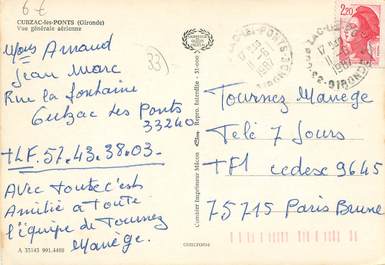 6 €
CUBZAC-les-PONTS (Gironde)
Vue générale aérienne
33
Arnaud
Jean Marc
Rue la fontaine
Cubzac les Ponts
33240
TLF. 57.43.38.03
Avec toute
Amitié a toute
l'équipe de Tournez
Manège.
A 33143 991.4480
Combier Imprimeur Mâcon
Repro. Interdite - 51.000
2,20
1987
1987
Tournez Manège
Telé 7 Jours
TF1 cedex 9645
75715 Paris Brune